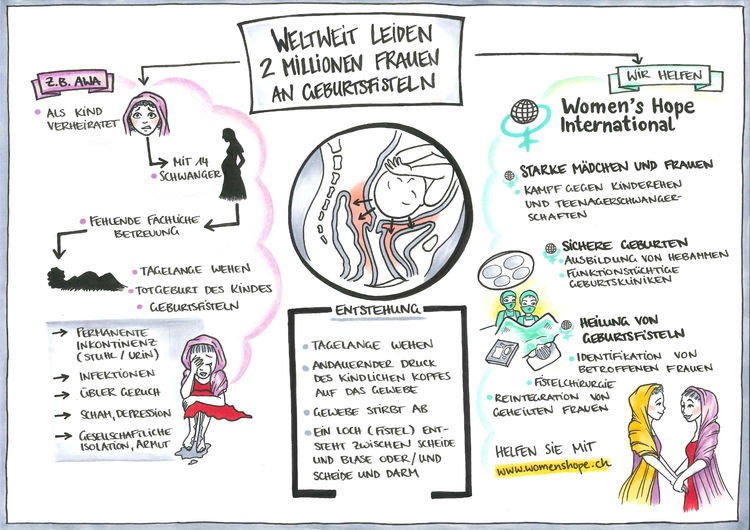 WELTWEIT LEIDEN
2 MILLIONEN FRAUEN
AN GEBURTSFISTELN
Z.B. AWA
ALS KIND
VERHEIRATET
MIT 14
SCHWANGER
FEHLENDE FACHLICHE
BETREUUNG
TAGELANGE WEHEN
TOTGEBURT DES KINDES
GEBURTSFISTELN
PERMANENTE
INKONTINENZ
(STUHL / URIN)
INFEKTIONEN
ÜBLER GERUCH
SCHAM, DEPRESSION
GESELLSCHAFTLICHE
ISOLATION, ARMUT
ENTSTEHUNG
TAGELANGE WEHEN
ANDAUERNDER DRUCK
DES KINDLICHEN KOPFES
AUF DAS GEWEBE
GEWEBE STIRBT AB
EIN LOCH (FISTEL) ENT-
STEHT ZWISCHEN SCHEIDE
UND BLASE ODER/UND
SCHEIDE UND DARM
WIR HELFEN
Women's Hope
International
STARKE MÄDCHEN UND FRAUEN
KAMPF GEGEN KINDEREHEN
UND TEENAGERSCHWANGER-
SCHAFTEN
SICHERE GEBURTEN
AUSBILDUNG VON HEBAMMEN
FUNKTIONSTÜCHTIGE
GEBURTSKLINIKEN
HEILUNG VON
GEBURTSFISTELN
IDENTIFIKATION VON
BETROFFENEN FRAUEN
FISTELCHIRURGIE
REINTEGRATION VON
GEHEILTEN FRAUEN
HELFEN SIE MIT
www.womenshope.ch